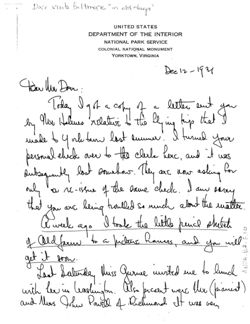 UNITED STATES
DEPARTMENT OF THE INTERIOR
NATIONAL PARK SERVICE
COLONIAL NATIONAL MONUMENT
YORKTOWN, VIRGINIA
Dec 12 - 1931
Dear Mr Dow:
Today I got a copy of a letter sent you
by Mrs relative to the flying trip that
made to Yorktown last summer. I turned your
personal check over to the clerk here, and it was
subsequently lost somehow. They are now asking for
only a re-issue of the same check. I am sorry
that you are being troubled so much about the matter.
A week ago I took the little pencil sketch
of to a picture framer, and you will
get it soon.
Last Saturday Miss invited me to lunch
with her in Washington. Also present were Mr (pianist)
and Mrs John Powell of Richmond. It was very